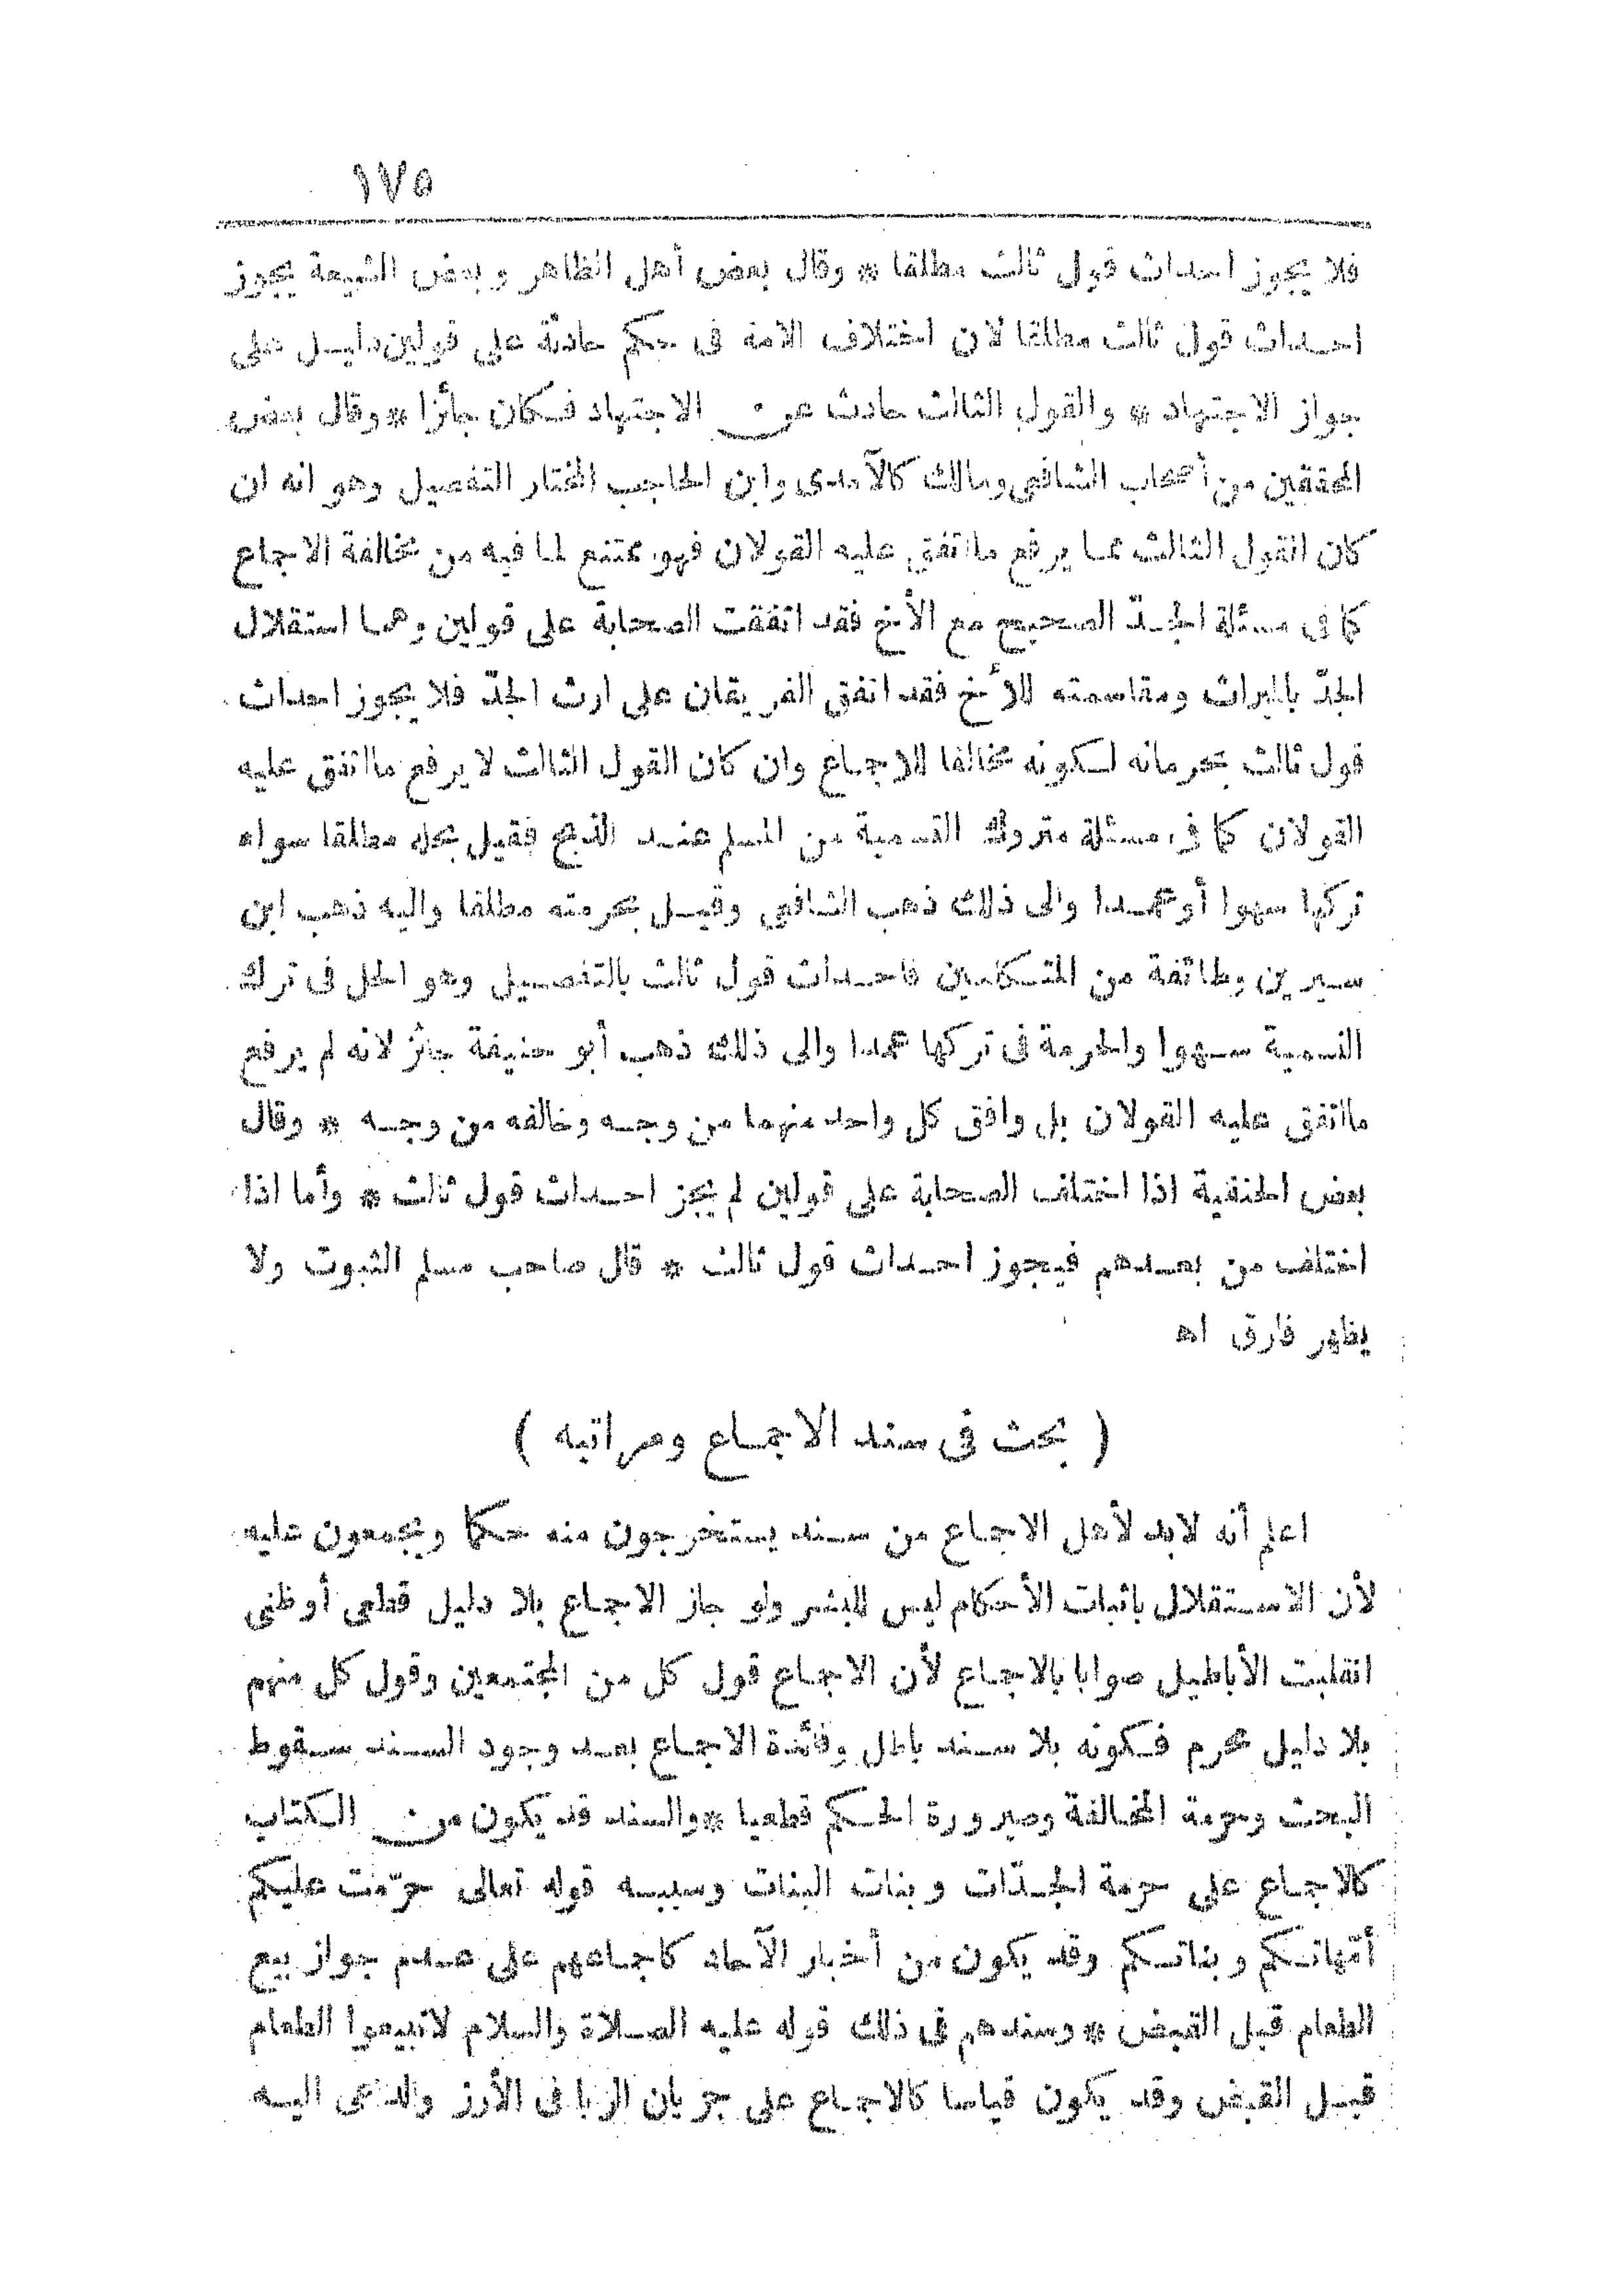 ١٧٥
فلا يجوز احداث قول ثالث مطلقا * وقال بعض أهل الظاهر وبعض الشيعة يجوز
احداث قول ثالث مطلقا لان اختلاف الامة فى حكم حادثة على قولين دليل على
جواز الاجتهاد * والقول الثالث حادث عن الاجتهاد فكان جائزا * وقال بعض
المحققين من أصحاب الشافعى ومالك كالآمدى وابن الحاجب المختار التفصيل وهو انه ان
كان القول الثالث مما يرفع مااتفق عليه القولان فهو ممتنع لما فيه من مخالفة الاجماع
كما فى مسئلة الجدّ الصحيح مع الأخ فقد اتفقت الصحابة على قولين وهما استقلال
الجدّ بالميراث ومقاسمته للأخ فقد اتفق الفريقان على ارث الجدّ فلا يجوز احداث
قول ثالث بحرمانه لكونه مخالفا للاجماع وان كان القول الثالث لا يرفع مااتفق عليه
القولان كما فى مسئلة متروك التسمية من المسلم عند الذبح فقيل بحله مطلقا سواء
تركها سهوا أوعمدا والى ذلك ذهب الشافعى وقيل بحرمته مطلقا واليه ذهب ابن
سيرين وطائفة من المتكلمين فاحداث قول ثالث بالتفصيل وهو الحل فى ترك
التسمية سهوا والحرمة فى تركها عمدا والى ذلك ذهب أبو حنيفة جائز لانه لم يرفع
مااتفق عليه القولان بل وافق كل واحد منهما من وجه وخالفه من وجه * وقال
بعض الحنفية اذا اختلف الصحابة على قولين لم يجز احداث قول ثالث * وأما اذا
اختلف من بعدهم فيجوز احداث قول ثالث * قال صاحب مسلم الثبوت ولا
يظهر فارق اه
( بحث فى سند الاجماع ومراتبه )
اعلم أنه لابد لأهل الاجماع من سند يستخرجون منه حكما ويجمعون عليه
لأن الاستقلال باثبات الأحكام ليس للبشر ولو جاز الاجماع بلا دليل قطعى أوظنى
انقلبت الأباطيل صوابا بالاجماع لأن الاجماع قول كل من المجتمعين وقول كل منهم
بلا دليل محرم فكونه بلا سند باطل وفائدة الاجماع بعد وجود السند سقوط
البحث وحرمة المخالفة وصيرورة الحكم قطعيا * والسند قد يكون من الكتاب
كالاجماع على حرمة الجدّات وبنات البنات وسببه قوله تعالى حرّمت عليكم
أمّهاتكم وبناتكم وقد يكون من أخبار الآحاد كاجماعهم على عدم جواز بيع
الطعام قبل القبض * وسندهم فى ذلك قوله عليه الصلاة والسلام لاتبيعوا الطعام
قبل القبض وقد يكون قياسا كالاجماع على جريان الربا فى الأرز والداعى اليه